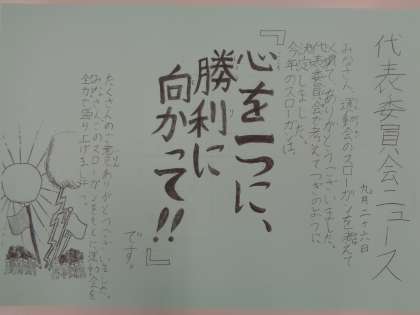 代表委員会ニュース
九月二十六日
みなさん、運動会のスローガンを考えて
くださって、ありがとうございました。
代表委員会で考えて、つぎのように
決定しました。
今年のスローガンは、
『心を一つに、
勝利に
向かって!!』
です。
たくさんのご意見ありがとうございました。
みなさん、このスローガンをもとに運動会を
全力で盛り上げましょう。